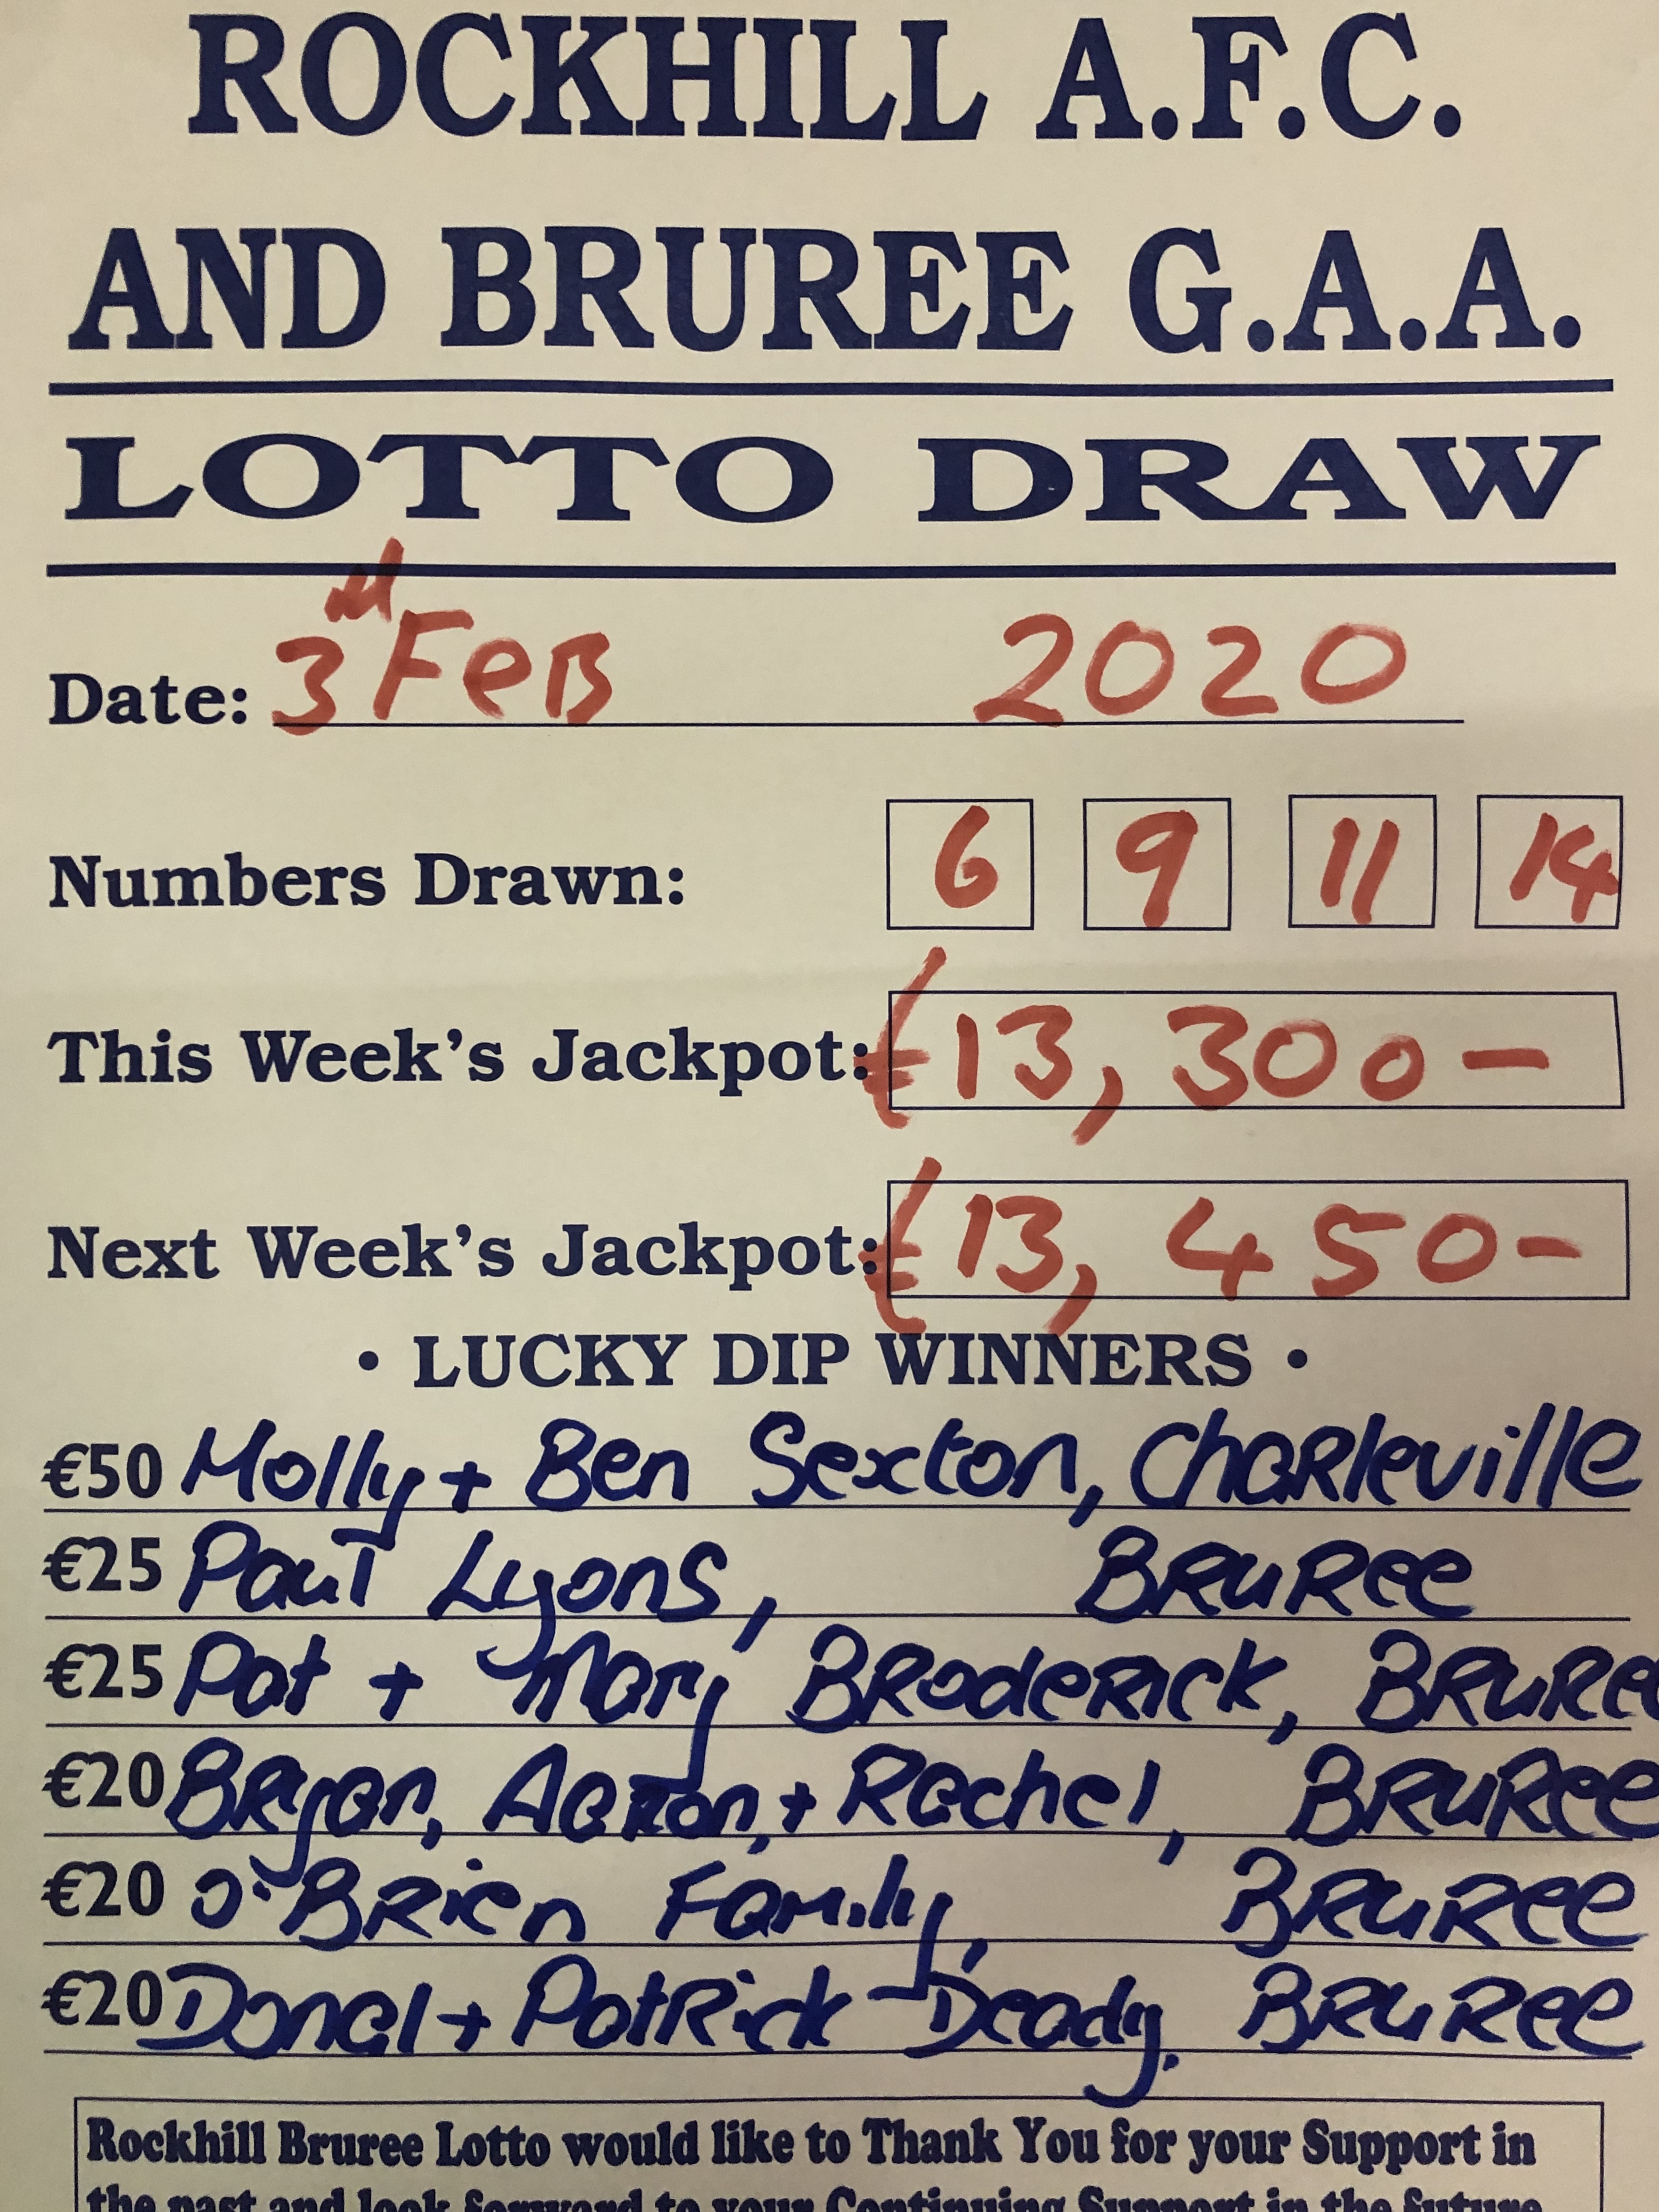 ROCKHILL A.F.C.
AND BRUREE G.A.A.
LOTTO DRAW
Date: 3rd FeB 2020
Numbers Drawn: 6 9 11 14
This Week's Jackpot: €13,300-
Next Week's Jackpot: €13,450-
• LUCKY DIP WINNERS •
€50 Molly + Ben Sexton, Charleville
€25 Paul Lyons, BRuRee
€25 Pat + Mary BRodeRick, BRuRee
€20 BRyan, Aaron, + Rachel, BRuRee
€20 O'BRien Family, BRuRee
€20 Donal + PatRick Deady, BRuRee
Rockhill Bruree Lotto would like to Thank You for your Support in
the past and look forward to your Continuing Support in the future